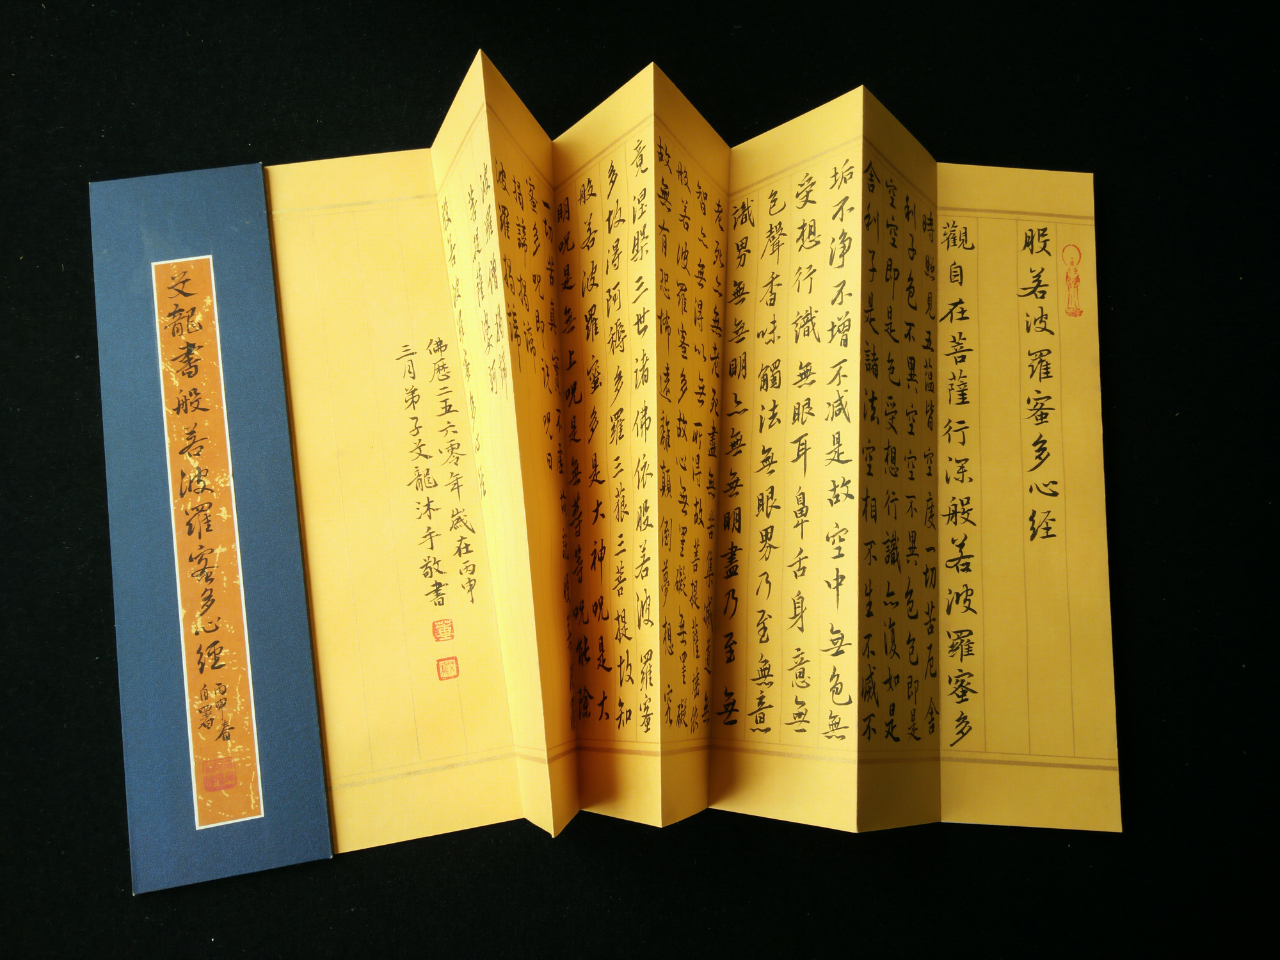 般若波羅蜜多心经
觀自在菩薩行深般若波羅蜜多
時照見五蕴皆空度一切苦厄舍
利子色不異空空不異色色即是
空空即是色受想行識亦復如是
舍利子是諸法空相不生不滅不
垢不净不增不减是故空中無色無
受想行識無眼耳鼻舌身意無
色聲香味觸法無眼界乃至無意
識界無無明亦無無明盡乃至無
老死亦無老死盡無苦集滅道無
智亦無得以無所得故菩提薩埵依
般若波羅蜜多故心無罣礙無罣礙
故無有恐怖遠離顛倒夢想究
竟涅槃三世諸佛依般若波羅蜜
多故得阿耨多羅三藐三菩提故知
般若波羅蜜多是大神呪是大
明呪是無上呪是無等等呪能除
一切苦真實不虚故說般若
蜜多呪即說呪曰
揭諦揭諦
波羅揭諦
波羅僧揭諦
菩提薩婆訶
般若波羅蜜多心經
佛歷二五六零年歲在丙申
三月弟子文龍沐手敬書
文龍書般若波羅蜜多心經
丙申春
自署